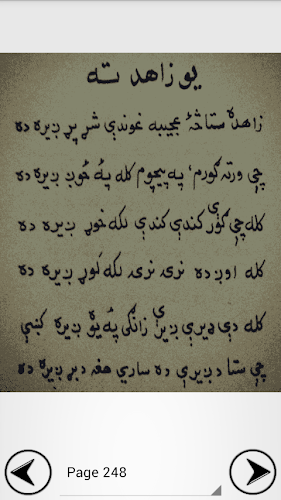 یو زاهد ته
زاهده ستا څه عجیبه غوندې شړ پړ ږیره ده
چې ورته ګورم، په پیچومو کله په ځوږ ږیره ده
کله چې ګوري کندې کندې لکه خوړ ږیره ده
کله اوږده نرۍ نرۍ لکه لوړ ږیره ده
کله دې ډیرې بریږي زانګي په یوه ږیره کښې
چې ستا د ږیرې ده ساري هغه د بز ږیره ده
Page 248